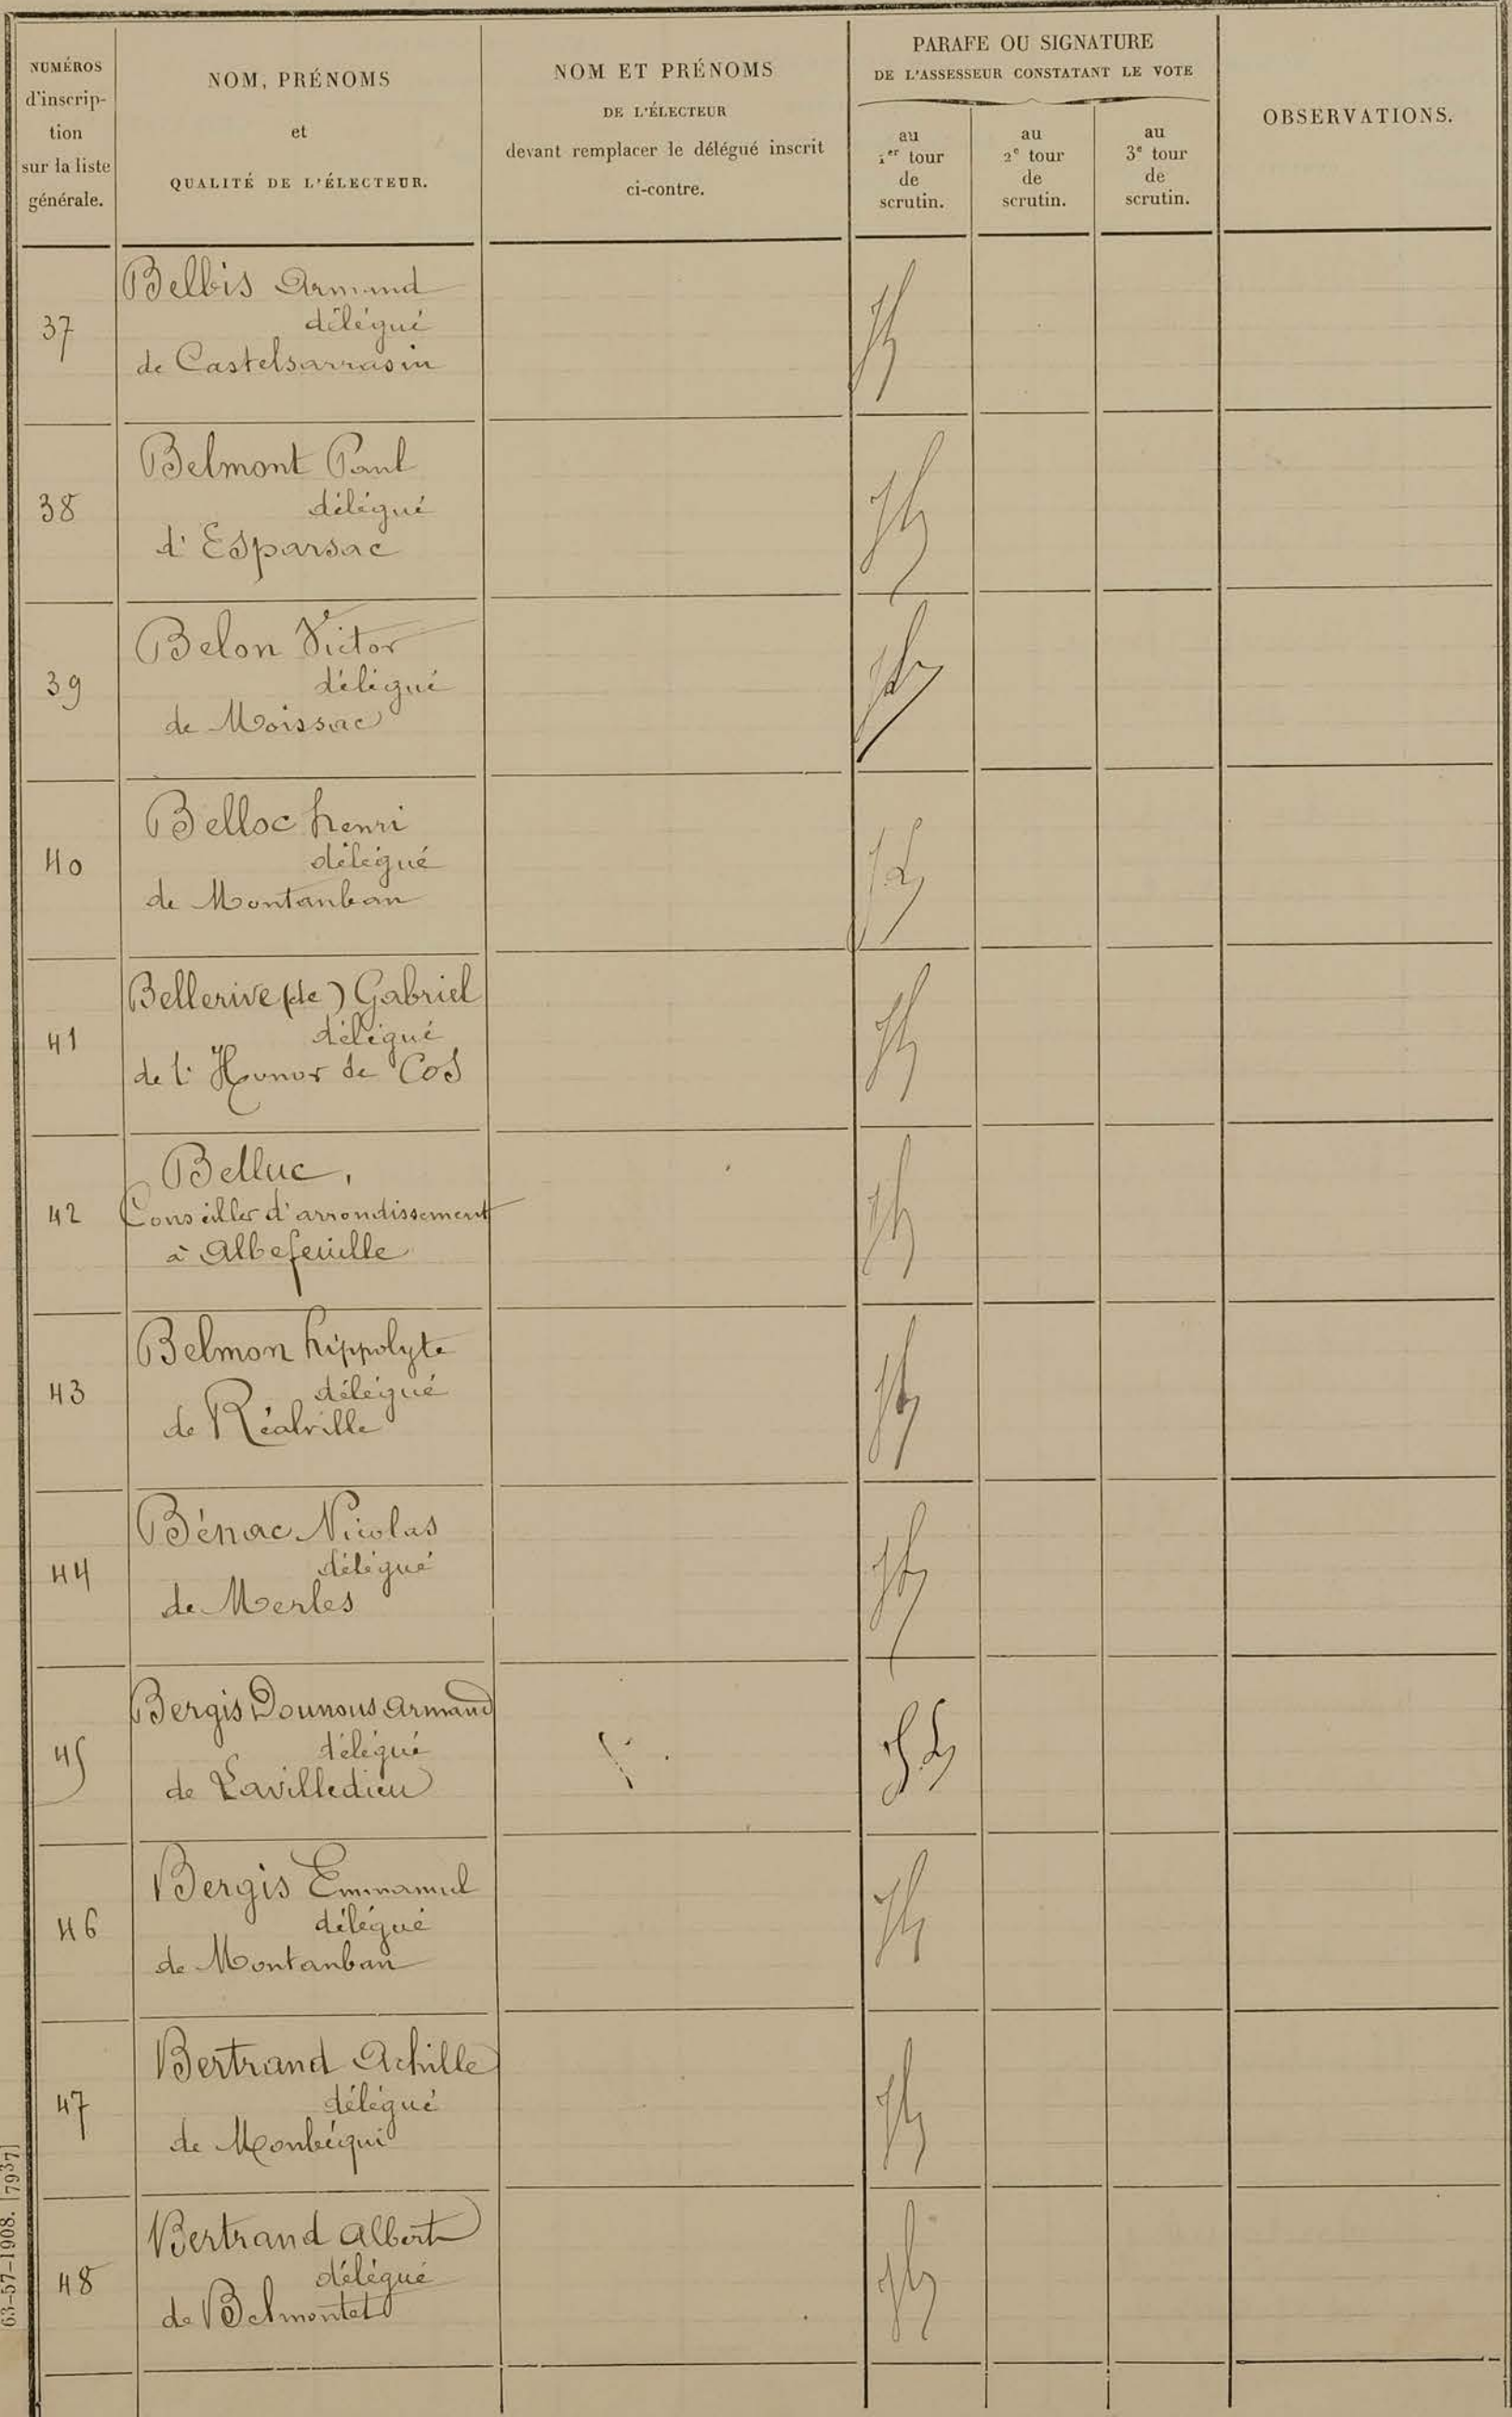 NUMÉROS
d'inscrip-
tion
sur la liste
générale.
NOM, PRÉNOMS
et
QUALITÉ DE L'ÉLECTEUR.
NOM ET PRÉNOMS
DE L'ÉLECTEUR
devant remplacer le délégué inscrit
ci-contre.
PARAFE OU SIGNATURE
DE L'ASSESSEUR CONSTATANT LE VOTE
au
1er tour
de
scrutin.
au
2e tour
de
scrutin.
au
3e tour
de
scrutin.
OBSERVATIONS.
37
Belbis Armand
délégué
de Castelsarrasin
38
Belmont Paul
délégué
d'Esparsac
39
Belon Victor
délégué
de Moissac
40
Belloc henri
délégué
de Montauban
41
Bellerive (de) Gabriel
délégué
de l'Honor de Cos
42
Belluc,
Conseiller d'arrondissement
à Albefeuille
43
Belmon hippolyte
délégué
de Réalville
44
Bénac Nicolas
délégué
de Merles
45
Bergis Dounous Armand
délégué
de Lavilledieu
46
Bergis Emmanuel
délégué
de Montauban
47
Bertrand Achille
délégué
de Monbéqui
48
Bertrand Albert
délégué
de Belmontet
63-57-1908. [7937]